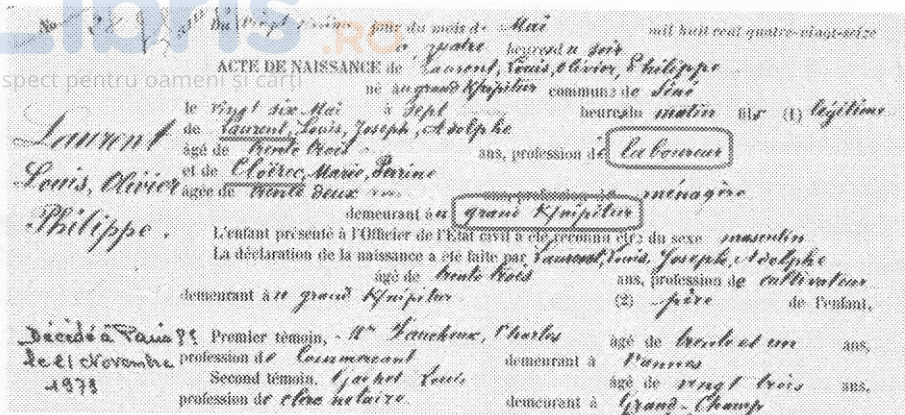 Libris
.RO
No 28 Du vingt sixième jour du mois de Mai mil huit cent quatre-vingt-seize
à quatre heures du soir
spect pentru oameni și cărți
ACTE DE NAISSANCE de Laurent, Louis, Olivier, Philippe
né au grand Kfnipitur commune de Séné
le vingt six Mai à Sept heures du matin fils (1) légitime
de Laurent, Louis, Joseph, Adolphe
âgé de trente trois ans, profession de laboureur
et de Cloërec, Marie, Perrine
âgée de trente deux ans, profession de ménagère
demeurant au grand Kfnipitur
Laurent
Louis, Olivier
Philippe.
L'enfant présenté à l'Officier de l'État civil a été reconnu être du sexe masculin
La déclaration de la naissance a été faite par Laurent, Louis, Joseph, Adolphe
âgé de trente trois ans, profession de cultivateur
demeurant au grand Kfnipitur (2) père de l'enfant,
Premier témoin, Mr Faucheux, Charles âgé de trente et un ans,
profession de Commerçant demeurant à Vannes
Second témoin, Gachet Louis âgé de vingt trois ans,
profession de clerc notaire. demeurant à Grand-Champ
Décédé à Paris
le 21 Novembre
1973